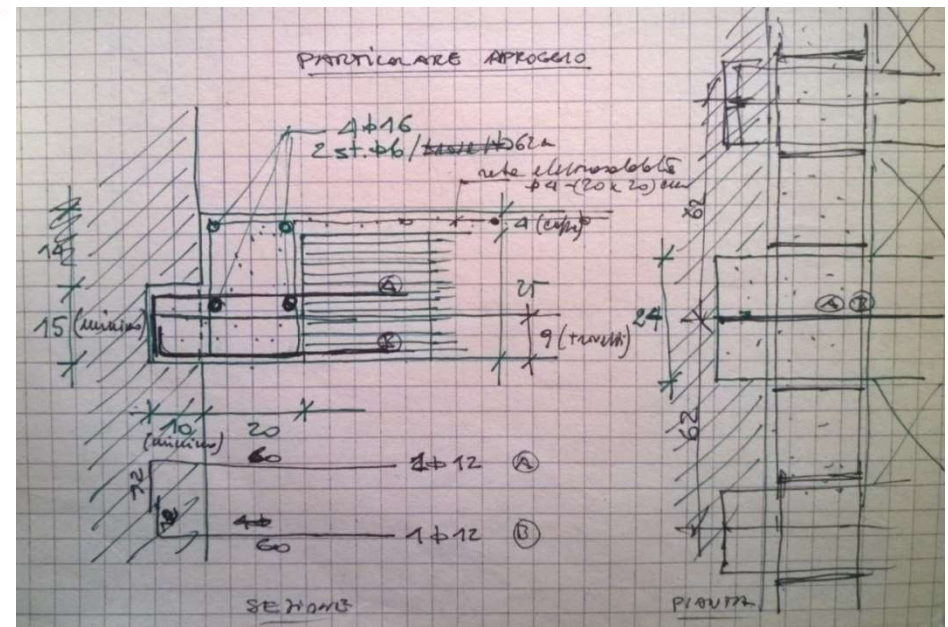 PARTICOLARE APPOGGIO
4ϕ16
2 st. ϕ6/ 62cm
rete elettrosaldata
ϕ4-(20x20)cm
4 (cappa)
14
A
15 (minimo)
9 (travetti)
B
10
20
(minimo)
60
1ϕ12 A
12
60
1ϕ12 B
SEZIONE
62
A B
24
62
PIANTA